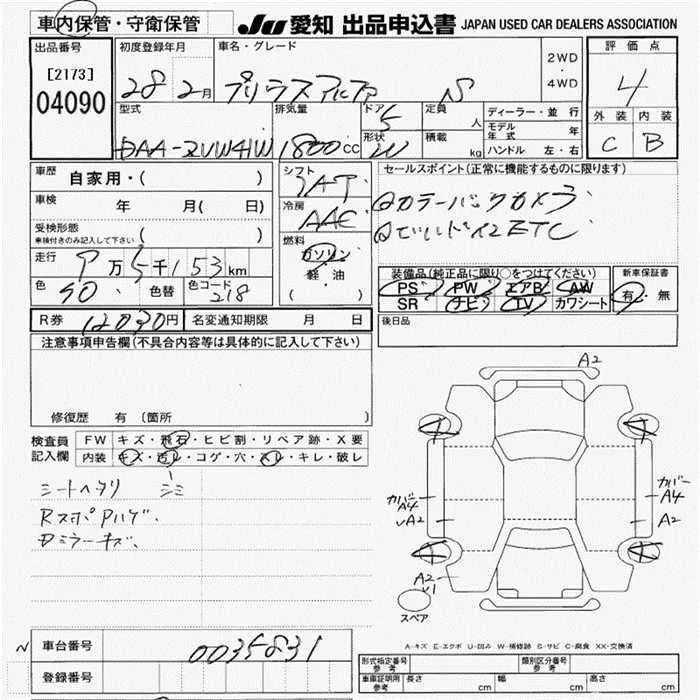 車内保管・守衛保管
JU 愛知 出品申込書 JAPAN USED CAR DEALERS ASSOCIATION
出品番号
[2173]
04090
初度登録年月
28 2月
車名・グレード
プリウスアルファ S
2WD
・
4WD
評価点
4
外装 内装
C B
型式
DAA-ZVW41W
排気量
1800cc
ドア
5
形状
W
定員
人
積載
kg
ディーラー・並行
モデル年式 年
ハンドル 左・右
車歴 自家用・( )
車検 年 月( 日)
受検形態
車検付きのみ記入して下さい ( )
走行 9万5千153km
色 90 色替 色コード 218
シフト
IAT
冷房
AAC
燃料
ガソリン
・
軽油
( ・ )
セールスポイント(正常に機能するものに限ります)
①カラーバックカメラ
②ビルドインETC
装備品(純正品に限り○をつけてください)
PS PW エアB AW
SR ナビ TV カワシート
新車保証書
有・無
後日品
R券 12030円
名変通知期限 月 日
注意事項申告欄(不具合内容等は具体的に記入して下さい)
修復歴 有(箇所 )
検査員
記入欄
FW キズ・飛石・ヒビ割・リペア跡・X要
内装 キズ・汚レ・コゲ・穴・スレ・キレ・破レ
シートヘタリ シミ
Rスポイラハゲ.
Dミラーキズ.
A2
カバー
A4
A2
カバー
A4
A2
A2
スペア
A-キズ E-エクボ U-凹み W-補修跡 S-サビ C-腐食 XX-交換済
車台番号 0035831
登録番号
形式指定番号
参考
類別区分番号
参考
車庫証明用
参考
長さ cm 幅 cm 高さ cm